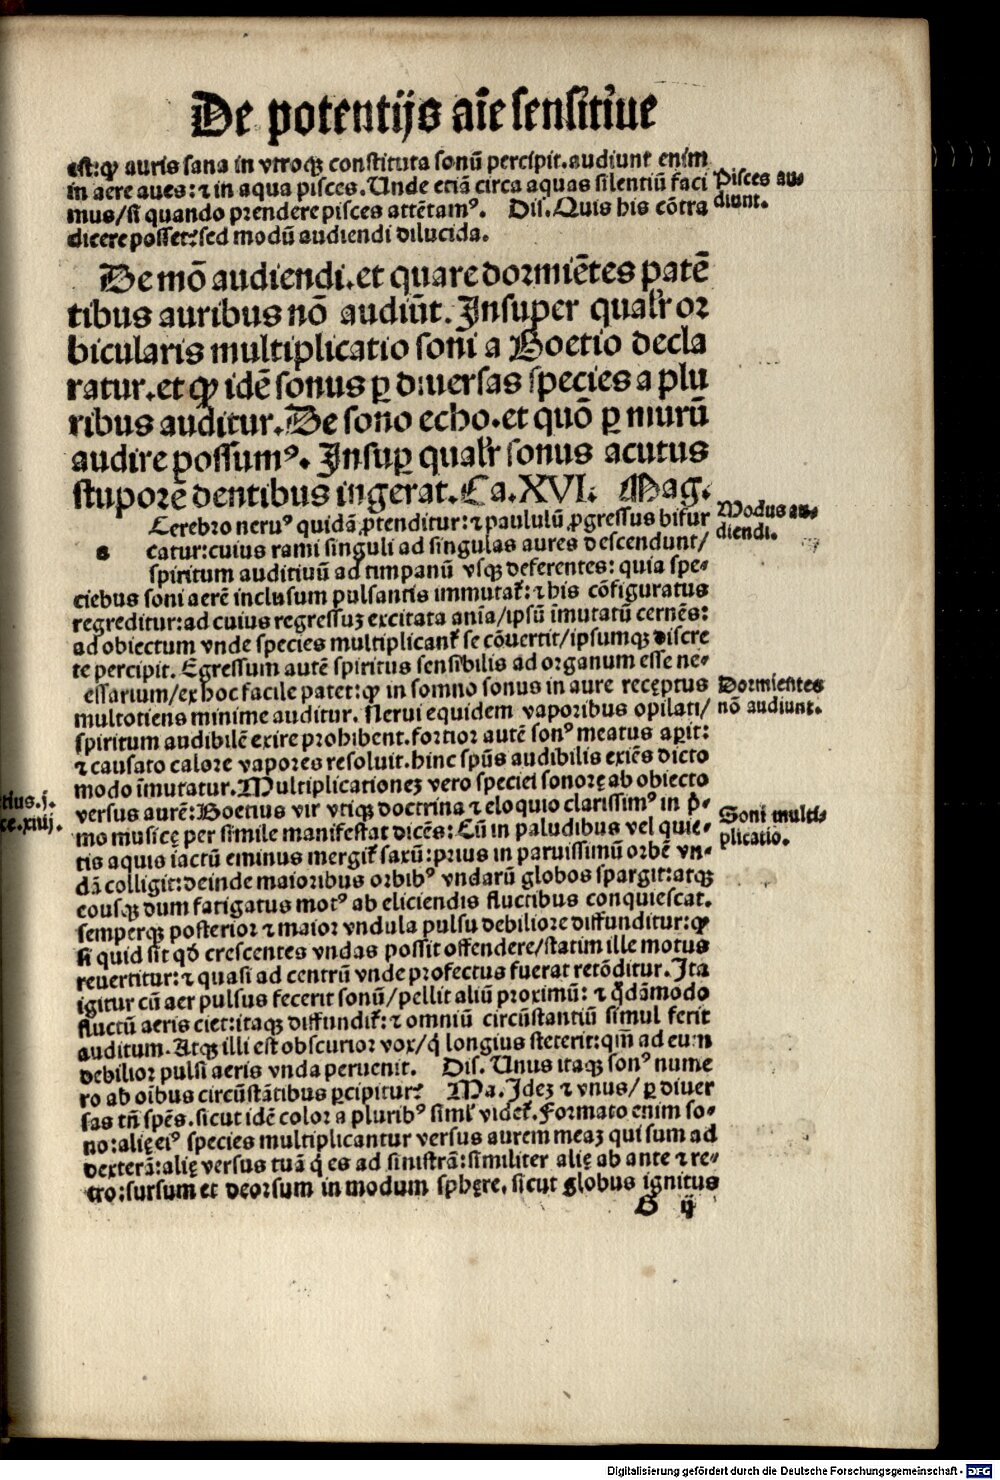 De potentijs aīe sensitiue
est:ꝙ auris sana in vtroqꝫ constituta sonū percipit.audiunt enim
in aere aues:⁊ in aqua pisces.Unde etiā circa aquas silentiū faci
mus/si quando prendere pisces attētamꝰ. Dis.Quis his cōtra
dicere posset:sed modū audiendi dilucida.
Pisces au⸗
diunt.
De mō audiendi.et quare dormiētes patē
tibus auribus nō audiūt.Insuper qualr̄ or
bicularis multiplicatio soni a Boetio decla
ratur.et ꝙ idē sonus ꝑ diuersas species a plu
ribus auditur.De sono echo.et quō ꝑ murū
audire possumꝰ. Insuꝑ qualr̄ sonus acutus
stuporē dentibus ingerat.Ca.XVI. Mag.
Cerebro neruꝰ quidā ꝓtenditur:⁊ paululū ꝓgressus bifur
s catur:cuius rami singuli ad singulas aures descendunt/
spiritum auditiuū ad timpanū vsqꝫ deferentes: quia spe⸗
ciebus soni aerē inclusum pulsantis immutat̄: ⁊ his cōfiguratus
regreditur:ad cuius regressuꝫ excitata anīa/ipsū īmutatū cernēs:
ad obiectum vnde species multiplicant̄ se cōuertit/ipsumqꝫ discre
te percipit. Egressum autē spiritus sensibilis ad organum esse ne⸗
essarium/ex hoc facile patet:ꝙ in somno sonus in aure receptus
multotiens minime auditur. Nerui equidem vaporibus opilati/
spiritum audibilē exire prohibent.fortior autē sonꝰ meatus aꝑit:
⁊ causato calore vapores resoluit.hinc spūs audibilis exiēs dicto
modo īmutatur.Multiplicationeꝫ vero speciei sonorę ab obiecto
versus aurē:Boetius vir vtiqꝫ doctrina ⁊ eloquio clarissimꝰ in p̄⸗
mo musicę per simile manifestat dicēs: Cū in paludibus vel quie⸗
tis aquis iactū eminus mergit̄ saxū:prius in paruissimū orbē vn⸗
dā colligit:deinde maioribus orbibꝰ vndarū globos spargit:atqꝫ
eousqꝫ dum fatigatus motꝰ ab eliciendis fluctibus conquiescat.
semperqꝫ posterior ⁊ maior vndula pulsu debiliore diffunditur:ꝙ
si quid sit qd̄ crescentes vndas possit offendere/statim ille motus
reuertitur:⁊ quasi ad centrū vnde profectus fuerat retōditur.Ita
igitur cū aer pulsus fecerit sonū/pellit aliū proximū: ⁊ q̄dāmodo
fluctū aeris ciet:itaqꝫ diffundit̄:⁊ omniū circūstantiū simul ferit
auditum.Atqꝫ illi est obscurior vox/q̄ longius steterit:qm̄ ad eum
debilior pulsi aeris vnda peruenit. Dis. Unus itaqꝫ sonꝰ nume
ro ab oībus circūstātibus ꝑcipitur? Ma.Ideꝫ ⁊ vnus/ ꝑ diuer
sas tn̄ spēs.sicut idē color a pluribꝰ siml̄ videt̄.Formato enim so⸗
no:alię eiꝰ species multiplicantur versus aurem meaꝫ qui sum ad
dexterā:alię versus tuā q̄ es ad sinistrā:similiter alię ab ante ⁊ re⸗
tro:sursum et deorsum in modum spherę, sicut globus ignitus
Modus au⸗
diendi.
Dormientes
nō audiunt.
tius.j.
ce.xiiij.
Soni multi⸗
plicatio.
B ij
Digitalisierung gefördert durch die Deutsche Forschungsgemeinschaft - DFG